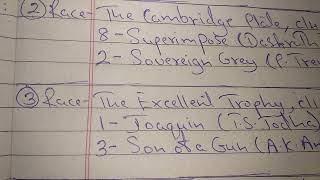 ② Race- The Cambridge Plate, 
8- Superimpose (Dashrath
2- Sovereign Grey (P. Trev
③ Race- The Excellent Trophy, 
1- Joaquin (T.S. Jodha)
3- Son of a Gun (A.K. Am